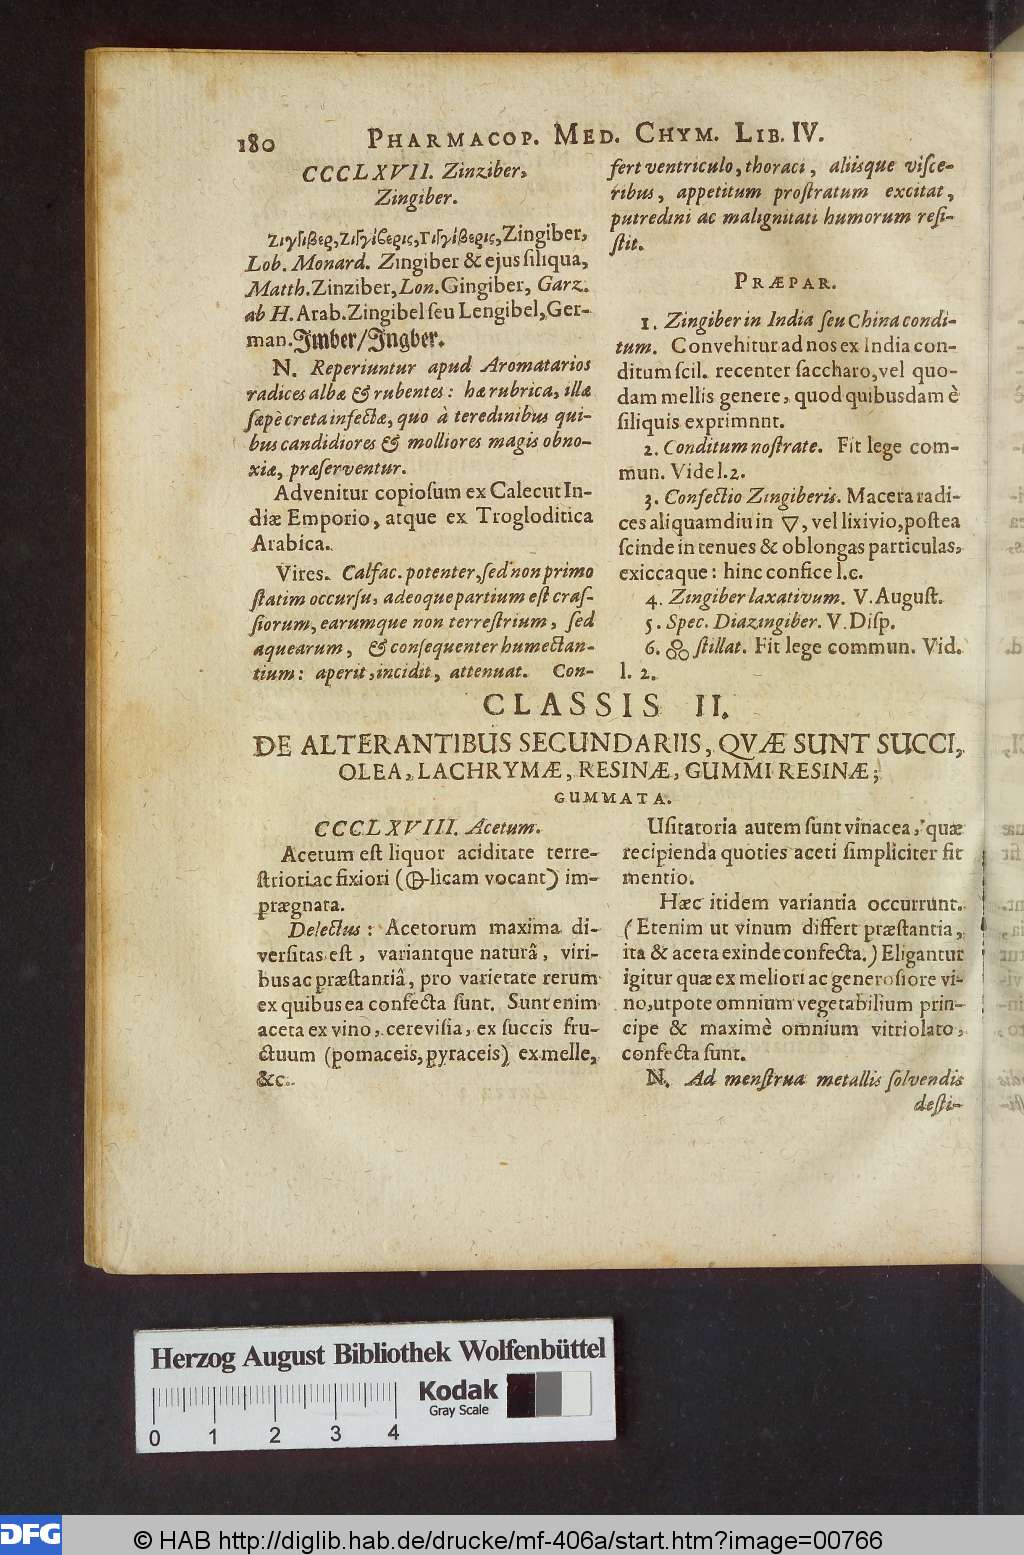 180 PHARMACOP. MED. CHYM. LIB. IV.
CCCLXVII. Zinziber,
Zingiber.
Ζιγγίβερ, Ζιγγίβερις, Γιγγίβερις, Zingiber,
Lob. Monard. Zingiber & ejus ſiliqua,
Matth. Zinziber, Lon. Gingiber, Garz.
ab H. Arab. Zingibel ſeu Lengibel, Ger-
man. Imber/Ingber.
N. Reperiuntur apud Aromatarios
radices albæ & rubentes: hæ rubrica, illæ
ſæpè creta infectæ, quo à teredinibus qui-
bus candidiores & molliores magis obno-
xiæ, præſerventur.
Advenitur copioſum ex Calecut In-
diæ Emporio, atque ex Trogloditica
Arabica.
Vires. Calfac. potenter, ſed non primo
ſtatim occurſu, adeoque partium eſt craſ-
ſiorum, earumque non terreſtrium, ſed
aquearum, & conſequenter humectan-
tium: aperit, incidit, attenuat. Con-
fert ventriculo, thoraci, aliisque viſce-
ribus, appetitum proſtratum excitat,
putredini ac malignitati humorum reſi-
ſtit.
PRÆPAR.
1. Zingiber in India ſeu China condi-
tum. Convehitur ad nos ex India con-
ditum ſcil. recenter ſaccharo, vel quo-
dam mellis genere, quod quibusdam è
ſiliquis exprimnnt.
2. Conditum noſtrate. Fit lege com-
mun. Vide l. 2.
3. Confectio Zingiberis. Macera radi-
ces aliquamdiu in 🜄, vel lixivio, poſtea
ſcinde in tenues & oblongas particulas,
exiccaque: hinc confice l. c.
4. Zingiber laxativum. V. Auguſt.
5. Spec. Diazingiber. V. Diſp.
6. ſtillat. Fit lege commun. Vid.
l. 2.
CLASSIS II.
DE ALTERANTIBUS SECUNDARIIS, QVÆ SUNT SUCCI,
OLEA, LACHRYMÆ, RESINÆ, GUMMI RESINÆ;
GUMMATA.
CCCLXVIII. Acetum.
Acetum eſt liquor aciditate terre-
ſtriori ac fixiori (🜕-licam vocant) im-
prægnata.
Delectus: Acetorum maxima di-
verſitas eſt, variantque naturâ, viri-
bus ac præſtantiâ, pro varietate rerum
ex quibus ea confecta ſunt. Sunt enim
aceta ex vino, cereviſia, ex ſuccis fru-
ctuum (pomaceis, pyraceis) ex melle,
&c.
Uſitatoria autem ſunt vinacea, quæ
recipienda quoties aceti ſimpliciter fit
mentio.
Hæc itidem variantia occurrunt.
(Etenim ut vinum differt præſtantia,
ita & aceta exinde confecta.) Eligantur
igitur quæ ex meliori ac generoſiore vi-
no, utpote omnium vegetabilium prin-
cipe & maximè omnium vitriolato,
confecta ſunt.
N. Ad menſtrua metallis ſolvendis
deſti-
Herzog August Bibliothek Wolfenbüttel
Kodak
Gray Scale
0 1 2 3 4
DFG
© HAB http://diglib.hab.de/drucke/mf-406a/start.htm?image=00766